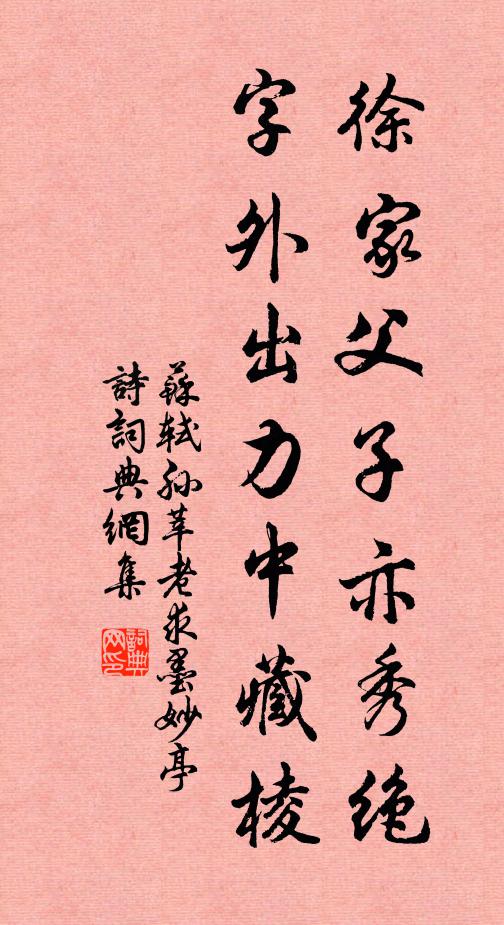 徐家父子亦秀絶
字外出力中藏棱
蘇軾孫莘老求墨妙亭
詩詞典網集
詞典网印